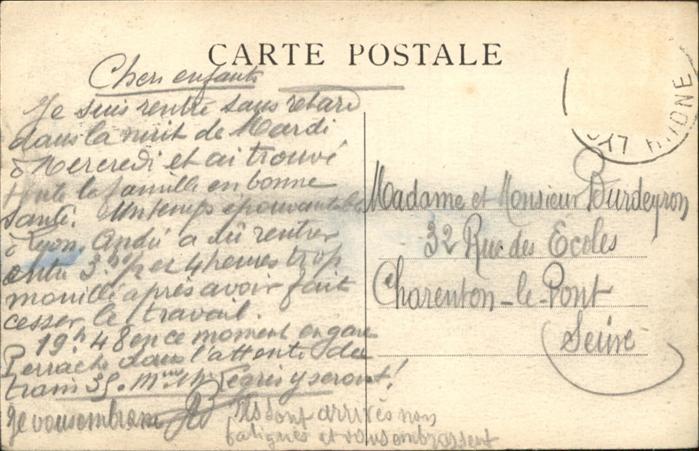 CARTE POSTALE
Chers enfants
Je suis rentré sans retard
dans la nuit de Mardi
à Mercredi et ai trouvé
toute la famille en bonne
santé. Un temps épouvantable
à Lyon, André a dû rentrer
entre 3 et 4 heures trop
mouillé après avoir fait
cesser le travail.
19h48 en ce moment en gare
Perrache dans l'attente du
train 35. y seront!
Je vous embrasse
Ils sont arrivés non
fatigués et vous embrassent
Madame et Monsieur Burdeyron
32 Rue des Ecoles
Charenton-le-Pont
Seine
LYON RHONE